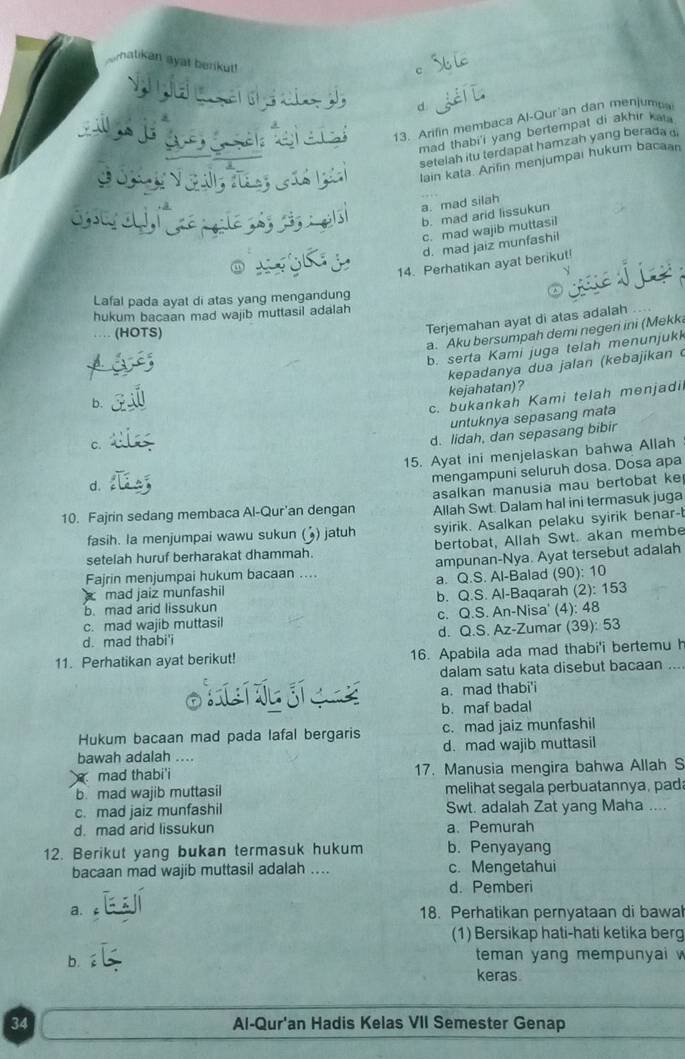 rhatikan ayat berikut!
قُرْءَانًا
Lafal pada ayat di atas yang mengandung
hukum bacaan mad wajib muttasil adalah
.... (HOTS)
b.
c.
d.
10. Fajrin sedang membaca Al-Qur'an dengan
fasih. Ia menjumpai wawu sukun (وْ) jatuh
setelah huruf berharakat dhammah.
Fajrin menjumpai hukum bacaan ....
mad jaiz munfashil
b. mad arid lissukun
c. mad wajib muttasil
d. mad thabi'i
11. Perhatikan ayat berikut!
يَحْسَبُ أَنَّ مَالَهٗٓ أَخْلَدَهٗ ۝٣
Hukum bacaan mad pada lafal bergaris
bawah adalah ....
mad thabi'i
b. mad wajib muttasil
c. mad jaiz munfashil
d. mad arid lissukun
12. Berikut yang bukan termasuk hukum
bacaan mad wajib muttasil adalah ....
a. الشِّتَآءِ
b. جَآءَ
c
d.
13. Arifin membaca Al-Qur'an dan menjumpai
mad thabi'i yang bertempat di akhir kata
setelah itu terdapat hamzah yang berada di
lain kata. Arifin menjumpai hukum bacaan
....
a. mad silah
b. mad arid lissukun
c. mad wajib muttasil
d. mad jaiz munfashil
14. Perhatikan ayat berikut!
نَجْعَلْ لَّهٗ عَيْنَيْنِ ۝٨
Terjemahan ayat di atas adalah ....
a. Aku bersumpah demi negeri ini (Mekka
b. serta Kami juga telah menunjukk
kepadanya dua jalan (kebajikan d
kejahatan)?
c. bukankah Kami telah menjadi
untuknya sepasang mata
d. lidah, dan sepasang bibir
15. Ayat ini menjelaskan bahwa Allah
mengampuni seluruh dosa. Dosa apa
asalkan manusia mau bertobat kep
Allah Swt. Dalam hal ini termasuk juga
syirik. Asalkan pelaku syirik benar-b
bertobat, Allah Swt. akan membe
ampunan-Nya. Ayat tersebut adalah
a. Q.S. Al-Balad (90): 10
b. Q.S. Al-Baqarah (2): 153
c. Q.S. An-Nisa' (4): 48
d. Q.S. Az-Zumar (39): 53
16. Apabila ada mad thabi'i bertemu h
dalam satu kata disebut bacaan ....
a. mad thabi'i
b. maf badal
c. mad jaiz munfashil
d. mad wajib muttasil
17. Manusia mengira bahwa Allah S
melihat segala perbuatannya, pada
Swt. adalah Zat yang Maha ....
a. Pemurah
b. Penyayang
c. Mengetahui
d. Pemberi
18. Perhatikan pernyataan di bawah
(1) Bersikap hati-hati ketika berg
teman yang mempunyai w
keras.
34
Al-Qur'an Hadis Kelas VII Semester Genap